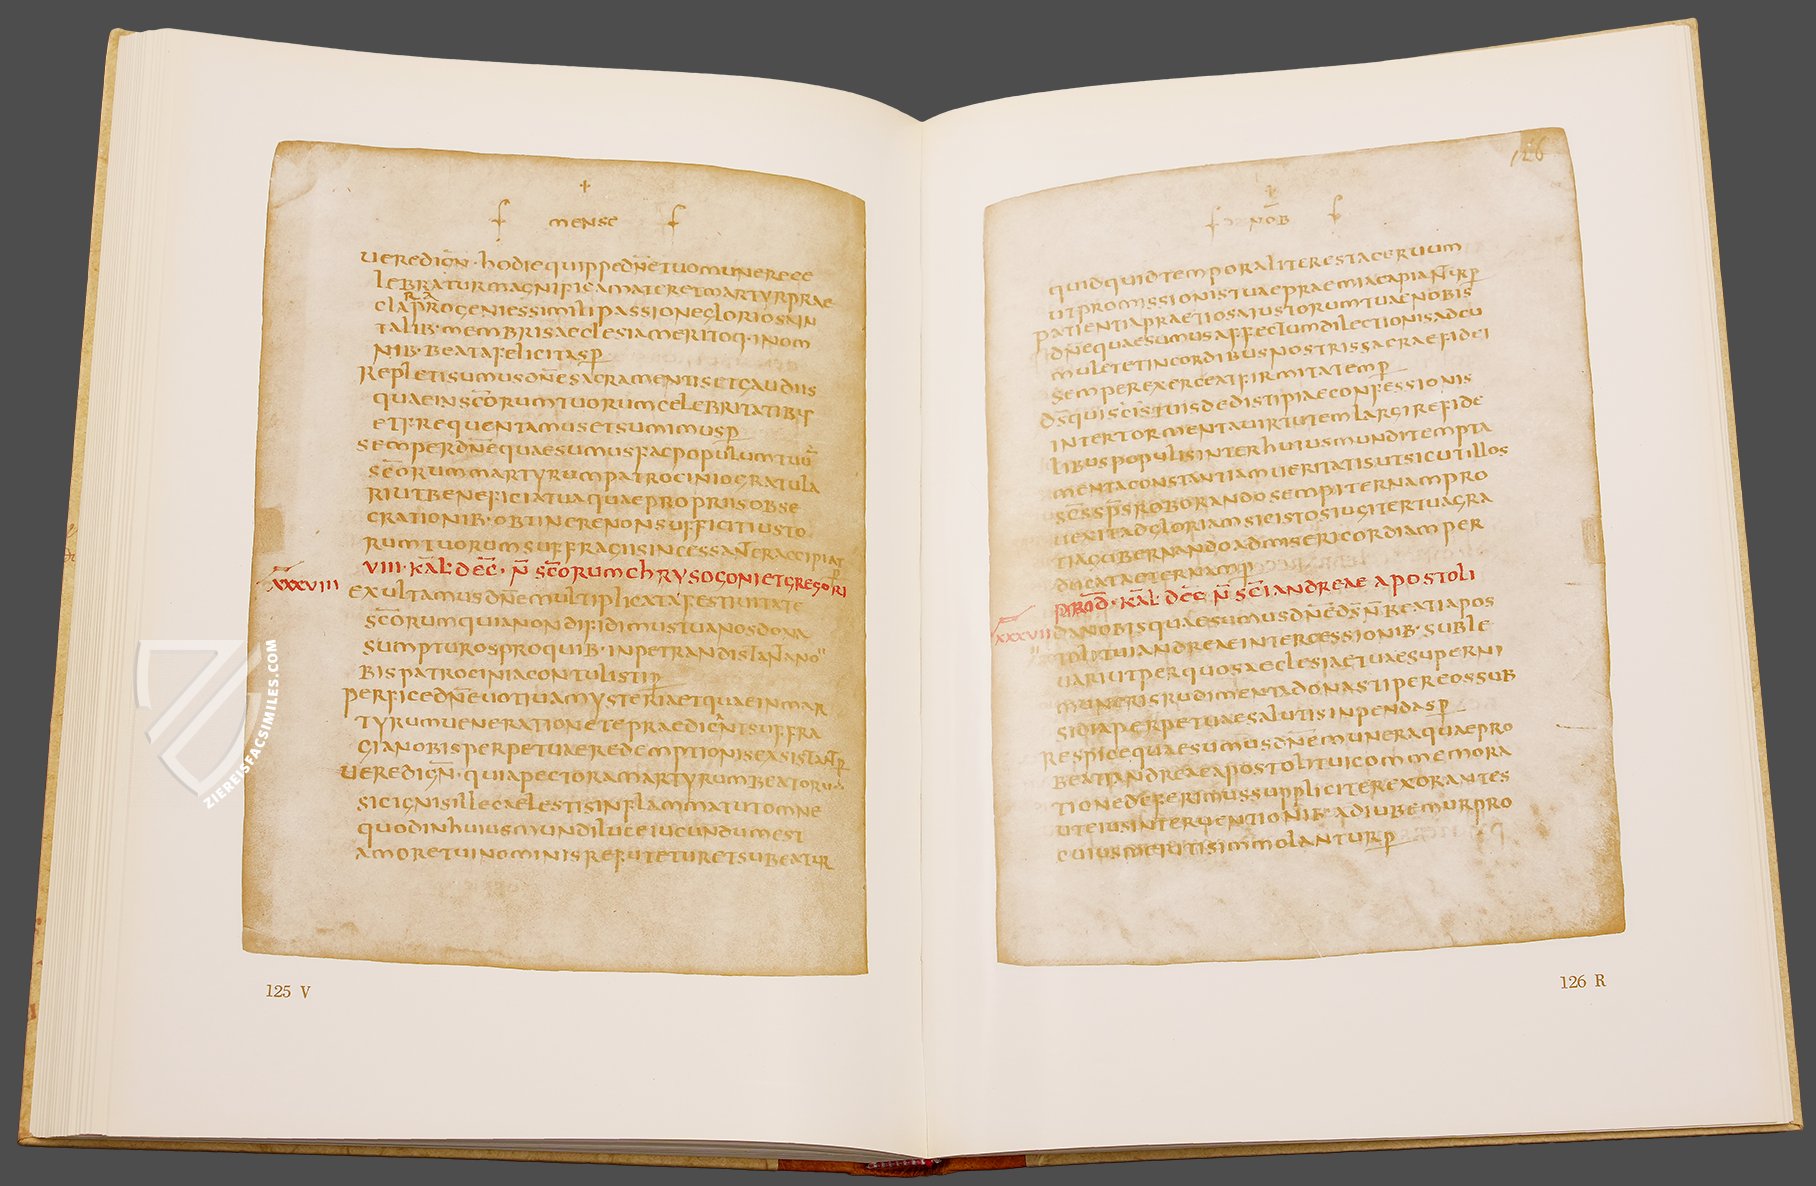 mense
ueredign̄ · hodiequippednēetuomunerece
lebraturmagnificamateretmartyrprae
claraprogeniessimilipassionegloriosain
talib· membrisaeclesiameritoq· inom
nib· beatafelicitasp
Repletisumusdnēsacramentisetgaudiis
quaeinscōrumtuorumcelebritatib;
etfrequentamusetsumimusp
semperdnēquaesumusfacpopulumtuū
scōrummartyrumpatrociniogratula
riutbeneficiatuaquaepropriisobse
crationib· obtinerenonsufficitiusto
rumtuorumsuffragiisincessanteraccipiat
VIII · kal̄ · dec̄ · n̄ scōrumchrysogonietgregori
xxxviii
exultamusdnēmultiplicatafestiuitate
scōrumquianondifidimustuanosdona
sumpturosproquib· inpetrandistantano
bispatrociniacontulistip
perficednēuotiuamysteriaetquaeinmar
tyrumuenerationetepraedicantsuffra
gianobisperpetuaeredemptionisexsistantp
ueredign̄ · quiapectoramartyrumbeatorum
sicignisillecaelestisinflammatutomne
quodinhuiusmundiluceiucundumest
amoretuinominisrefuteturetsubeatur
125 V
126
nōb
quidquidtemporaliterestacerbum
utpromissionistuaepraemiacapiantp
patientiapraetiosaiustorumtuaenobis
dnēquaesumusaffectumdilectionisadcu
muletetincordibusnostrissacraefidei
semperexerceatfirmitatemp
dsquiscistuisdedistipiaeconfessionis
intertormentauirtutemlargirefide
libuspopulisinterhuiusmunditempta
mentaconstantiamueritatisutsicutillos
scsspsroborandosempiternampro
uexitadgloriamsicistosiugitertuagra
tiagubernandoadmisericordiamper
ducataeternamp
prid · kal̄ · dec n̄ scīandreae apostoli
xxxvii
danobisquaesumusdnēdsn̄beatiapos
tolituiandreaeintercessionib· suble
uariutperquosaeclesiaetuaesuperni
munerisrudimentadonastipereossub
sidiaperpetuaesalutisinpendasp
Respicequaesumusdnēmuneraquaepro
beatiandreaeapostolituicommemora
tionedeferimussuppliciterexorantes
uteiusinteruentionib· adiubemurpro
cuiusmeritisimmolanturp
126 R
ZIEREISFACSIMILES.COM